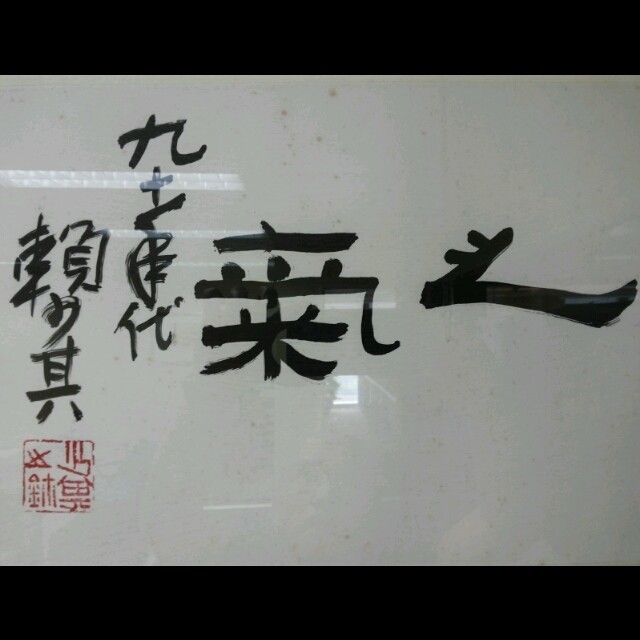 之氣
九十年代
賴少其